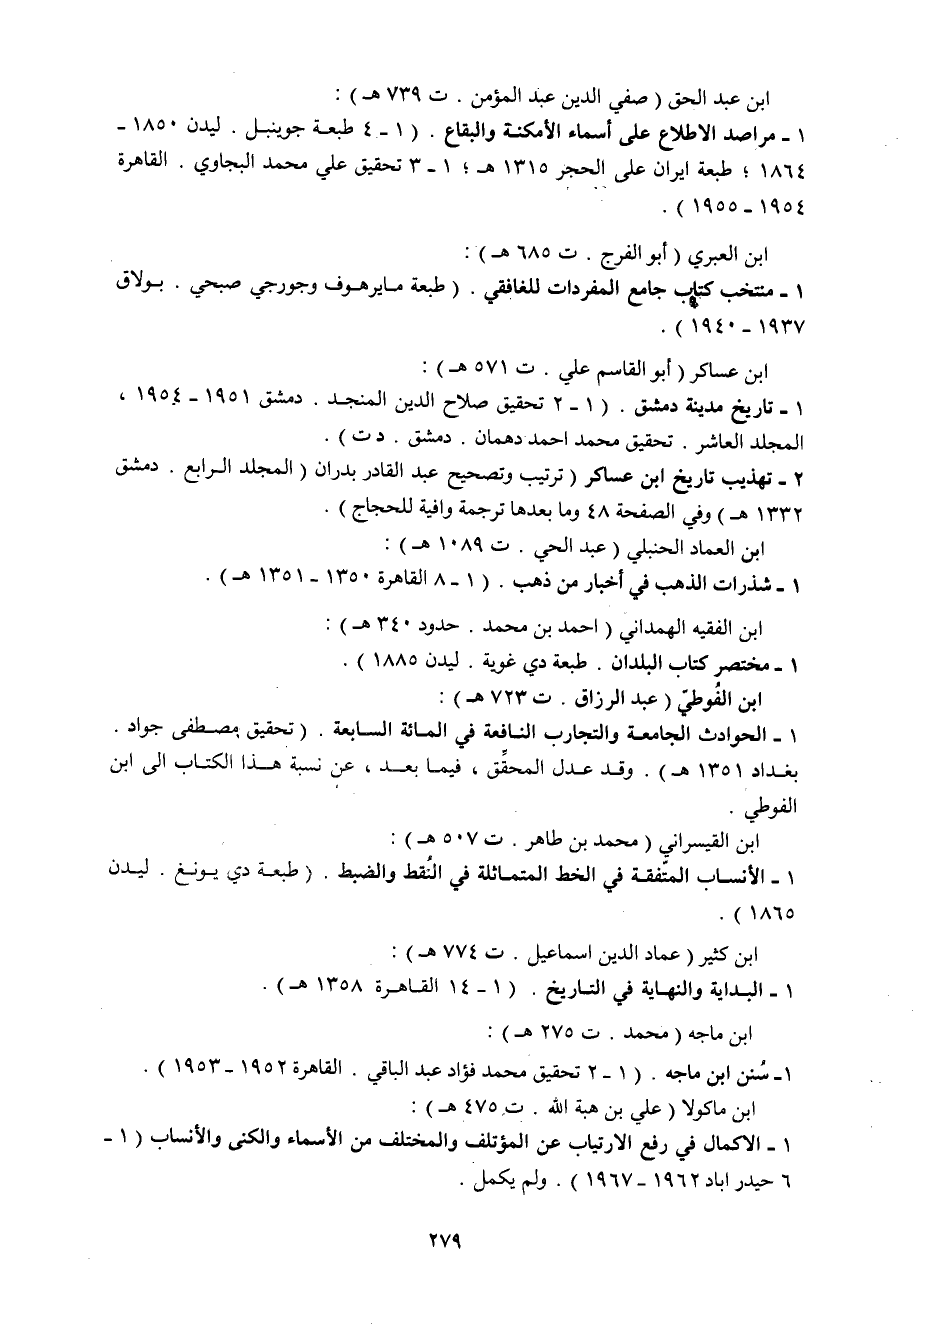 ابن عبد الحق ( صفي الدين عبد المؤمن . ت ٧٣٩ هـ ) :
١ ـ مراصد الاطلاع على أسماء الأمكنة والبقاع . ( ١ ـ ٤ طبعة جوينبل . ليدن ١٨٥٠ ـ
١٨٦٤ ؛ طبعة ايران على الحجر ١٣١٥ هـ ؛ ١ ـ ٣ تحقيق علي محمد البجاوي . القاهرة
١٩٥٤ ـ ١٩٥٥ ) .
ابن العبري ( أبو الفرج . ت ٦٨٥ هـ ) :
١ ـ منتخب كتاب جامع المفردات للغافقي . ( طبعة مايرهوف وجورجي صبحي . بولاق
١٩٣٧ ـ ١٩٤٠ ) .
ابن عساكر ( أبو القاسم علي . ت ٥٧١ هـ ) :
١ ـ تاريخ مدينة دمشق . ( ١ ـ ٢ تحقيق صلاح الدين المنجد . دمشق ١٩٥١ ـ ١٩٥٤ ،
المجلد العاشر . تحقيق محمد احمد دهمان . دمشق . د ت ) .
٢ ـ تهذيب تاريخ ابن عساكر ( ترتيب وتصحيح عبد القادر بدران ( المجلد الرابع . دمشق
١٣٣٢ هـ ) وفي الصفحة ٤٨ وما بعدها ترجمة وافية للحجاج ) .
ابن العماد الحنبلي ( عبد الحي . ت ١٠٨٩ هـ ) :
١ ـ شذرات الذهب في أخبار من ذهب . ( ١ ـ ٨ القاهرة ١٣٥٠ ـ ١٣٥١ هـ ) .
ابن الفقيه الهمداني ( احمد بن محمد . حدود ٣٤٠ هـ ) :
١ ـ مختصر كتاب البلدان . طبعة دي غوية . ليدن ١٨٨٥ ) .
ابن الفُوطيّ ( عبد الرزاق . ت ٧٢٣ هـ ) :
١ ـ الحوادث الجامعة والتجارب النافعة في المائة السابعة . ( تحقيق مصطفى جواد .
بغداد ١٣٥١ هـ ) . وقد عدل المحقِّق ، فيما بعد ، عن نسبة هذا الكتاب الى ابن
الفوطي .
ابن القيسراني ( محمد بن طاهر . ت ٥٠٧ هـ ) :
١ ـ الأنساب المتّفقة في الخط المتماثلة في النُقط والضبط . ( طبعة دي يونغ . ليدن
١٨٦٥ ) .
ابن كثير ( عماد الدين اسماعيل . ت ٧٧٤ هـ ) :
١ ـ البداية والنهاية في التاريخ . ( ١ ـ ١٤ القاهرة ١٣٥٨ هـ ) .
ابن ماجه ( محمد . ت ٢٧٥ هـ ) :
١ـ سُنن ابن ماجه . ( ١ ـ ٢ تحقيق محمد فؤاد عبد الباقي . القاهرة ١٩٥٢ ـ ١٩٥٣ ) .
ابن ماكولا ( علي بن هبة الله . ت ٤٧٥ هـ ) :
١ ـ الاكمال في رفع الارتياب عن المؤتلف والمختلف من الأسماء والكنى والأنساب ( ١ ـ
٦ حيدر اباد ١٩٦٢ ـ ١٩٦٧ ) . ولم يكمل .
٢٧٩